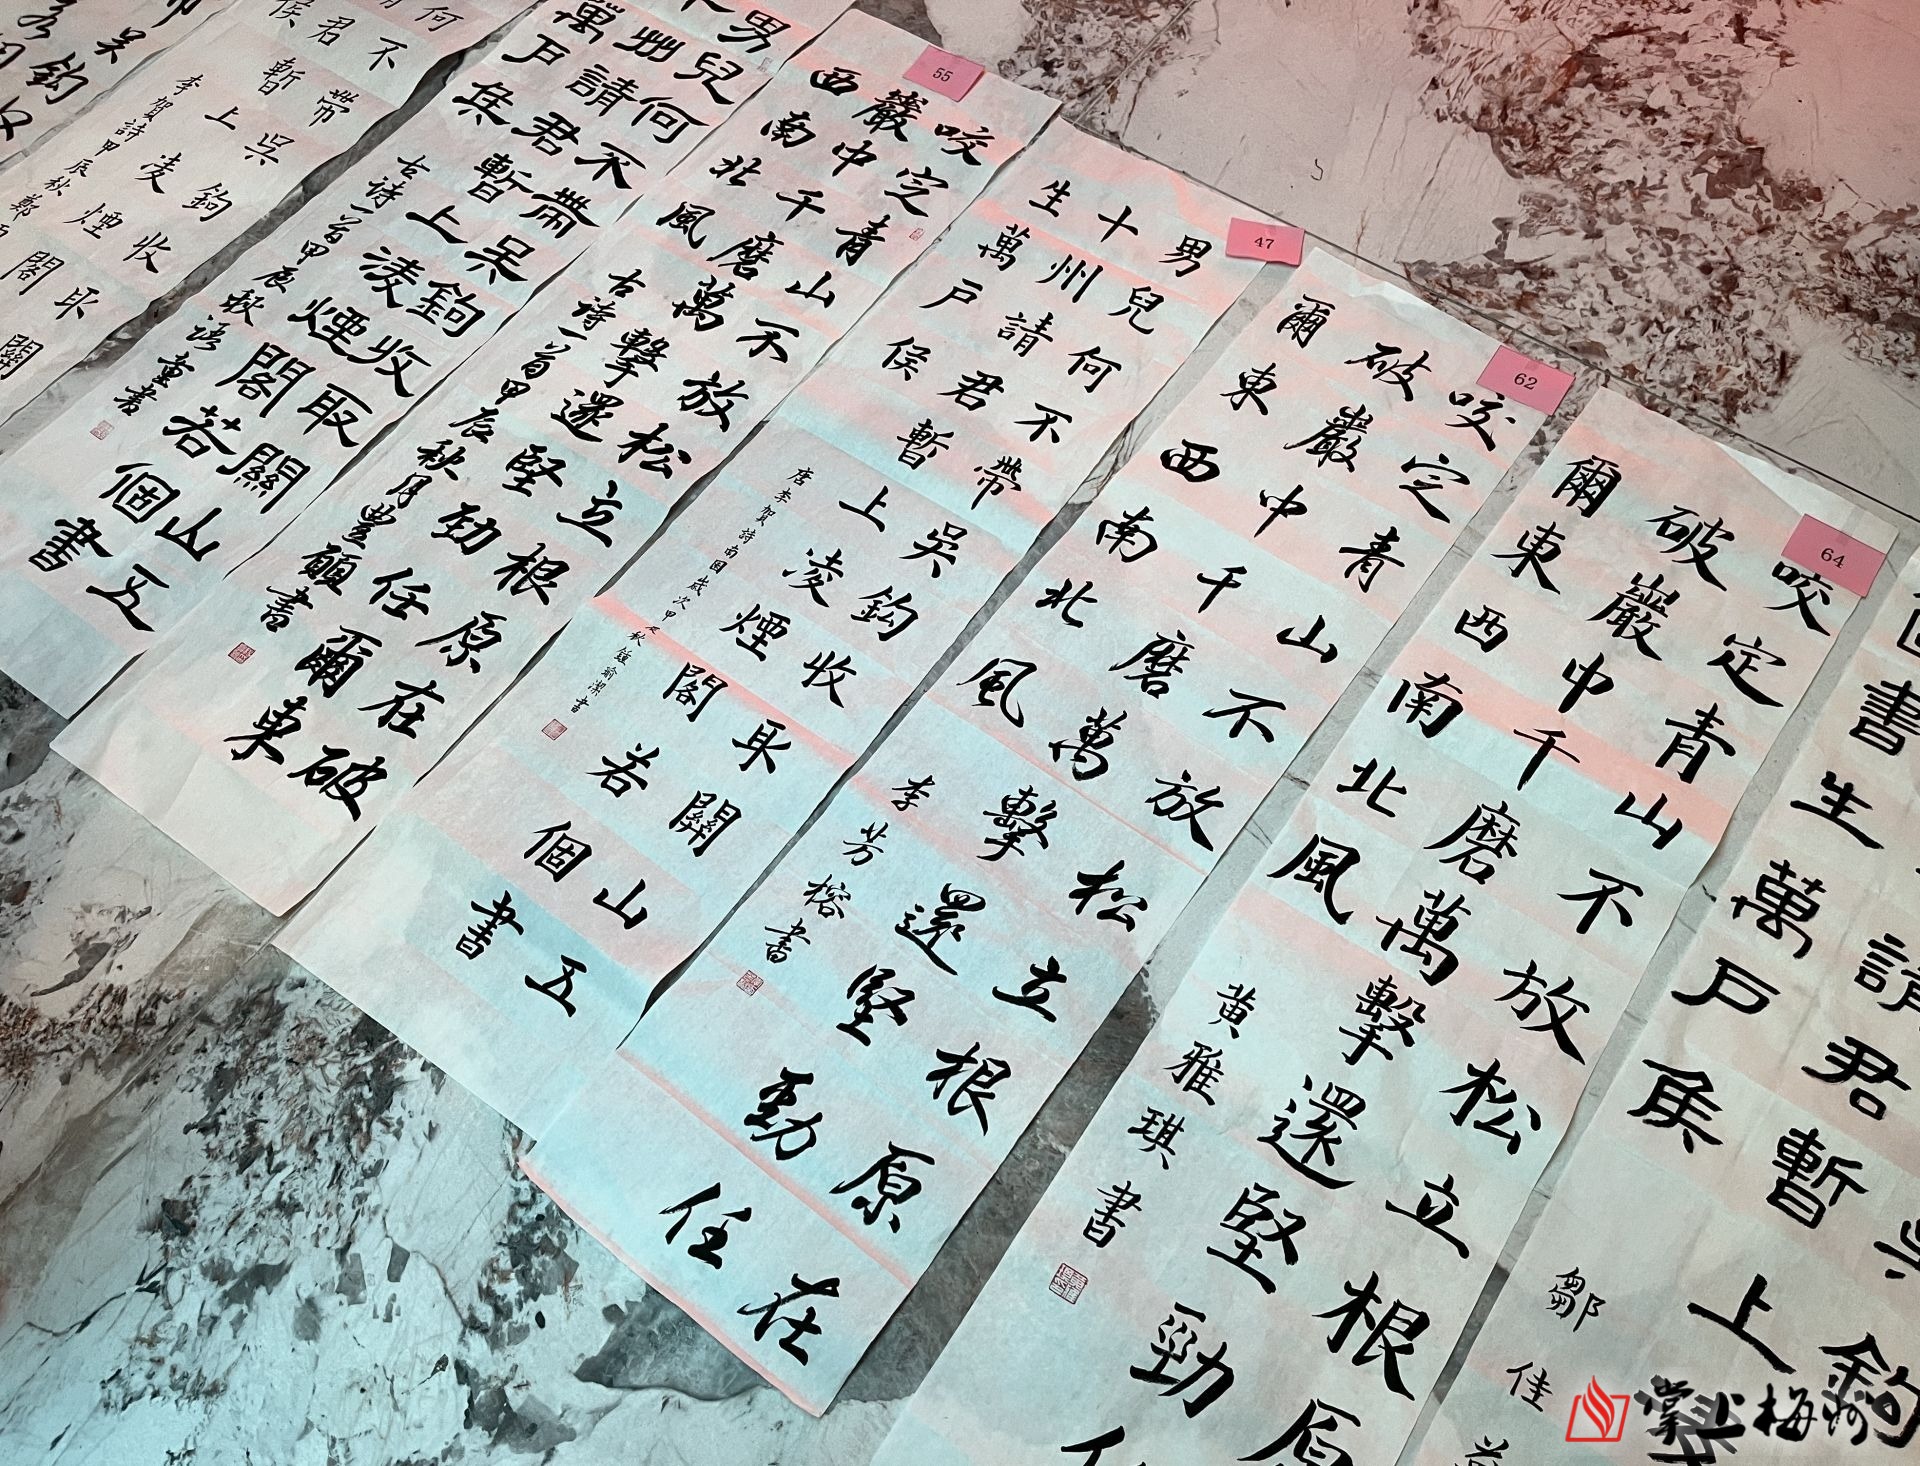 吳鉤
請君暫上
書生萬戶矦
鄒佳
64
咬定青山不放松立根原
破巖中千磨萬擊還堅勁
爾東西南北風
黄雅琪書
62
咬定青山不放松立根原在
破巖中千磨萬擊還堅勁任
爾東西南北風
李芳榕書
47
男兒何不帶吳鉤收取關山五
十州請君暫上凌煙閣若個書
生萬戶侯
唐李賀詩南園歲次甲辰秋鍾俞潔書
55
咬定青山不放松立根原在破
巖中千磨萬擊還堅勁任爾東
西南北風
古诗一首甲辰秋月豐頤書
男兒何不帶吳鉤收取關山五
州請君暫上凌煙閣若個書
萬戶矦
古诗一首甲辰秋語童書
何不帶吳鉤收取關
君暫上凌煙閣
侯
李賀詩甲辰秋鄭
吳鉤
掌上梅州